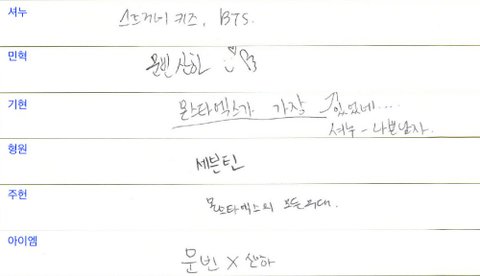 셔누
스트레이 키즈, BTS.
민혁
문빈 산하
기현
몬스타엑스가 가장 멋있었네....
셔누 - 나쁜남자.
형원
세븐틴
주헌
몬스타엑스의 모든 무대.
아이엠
문빈 X 산하